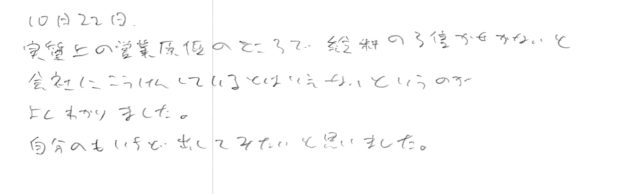 10月22日
実質上の営業原価のところで、給料の3倍かせがないと
会社にこうけんしているとはいえないというのが
よくわかりました。
自分のもいちど出してみたいと思いました。